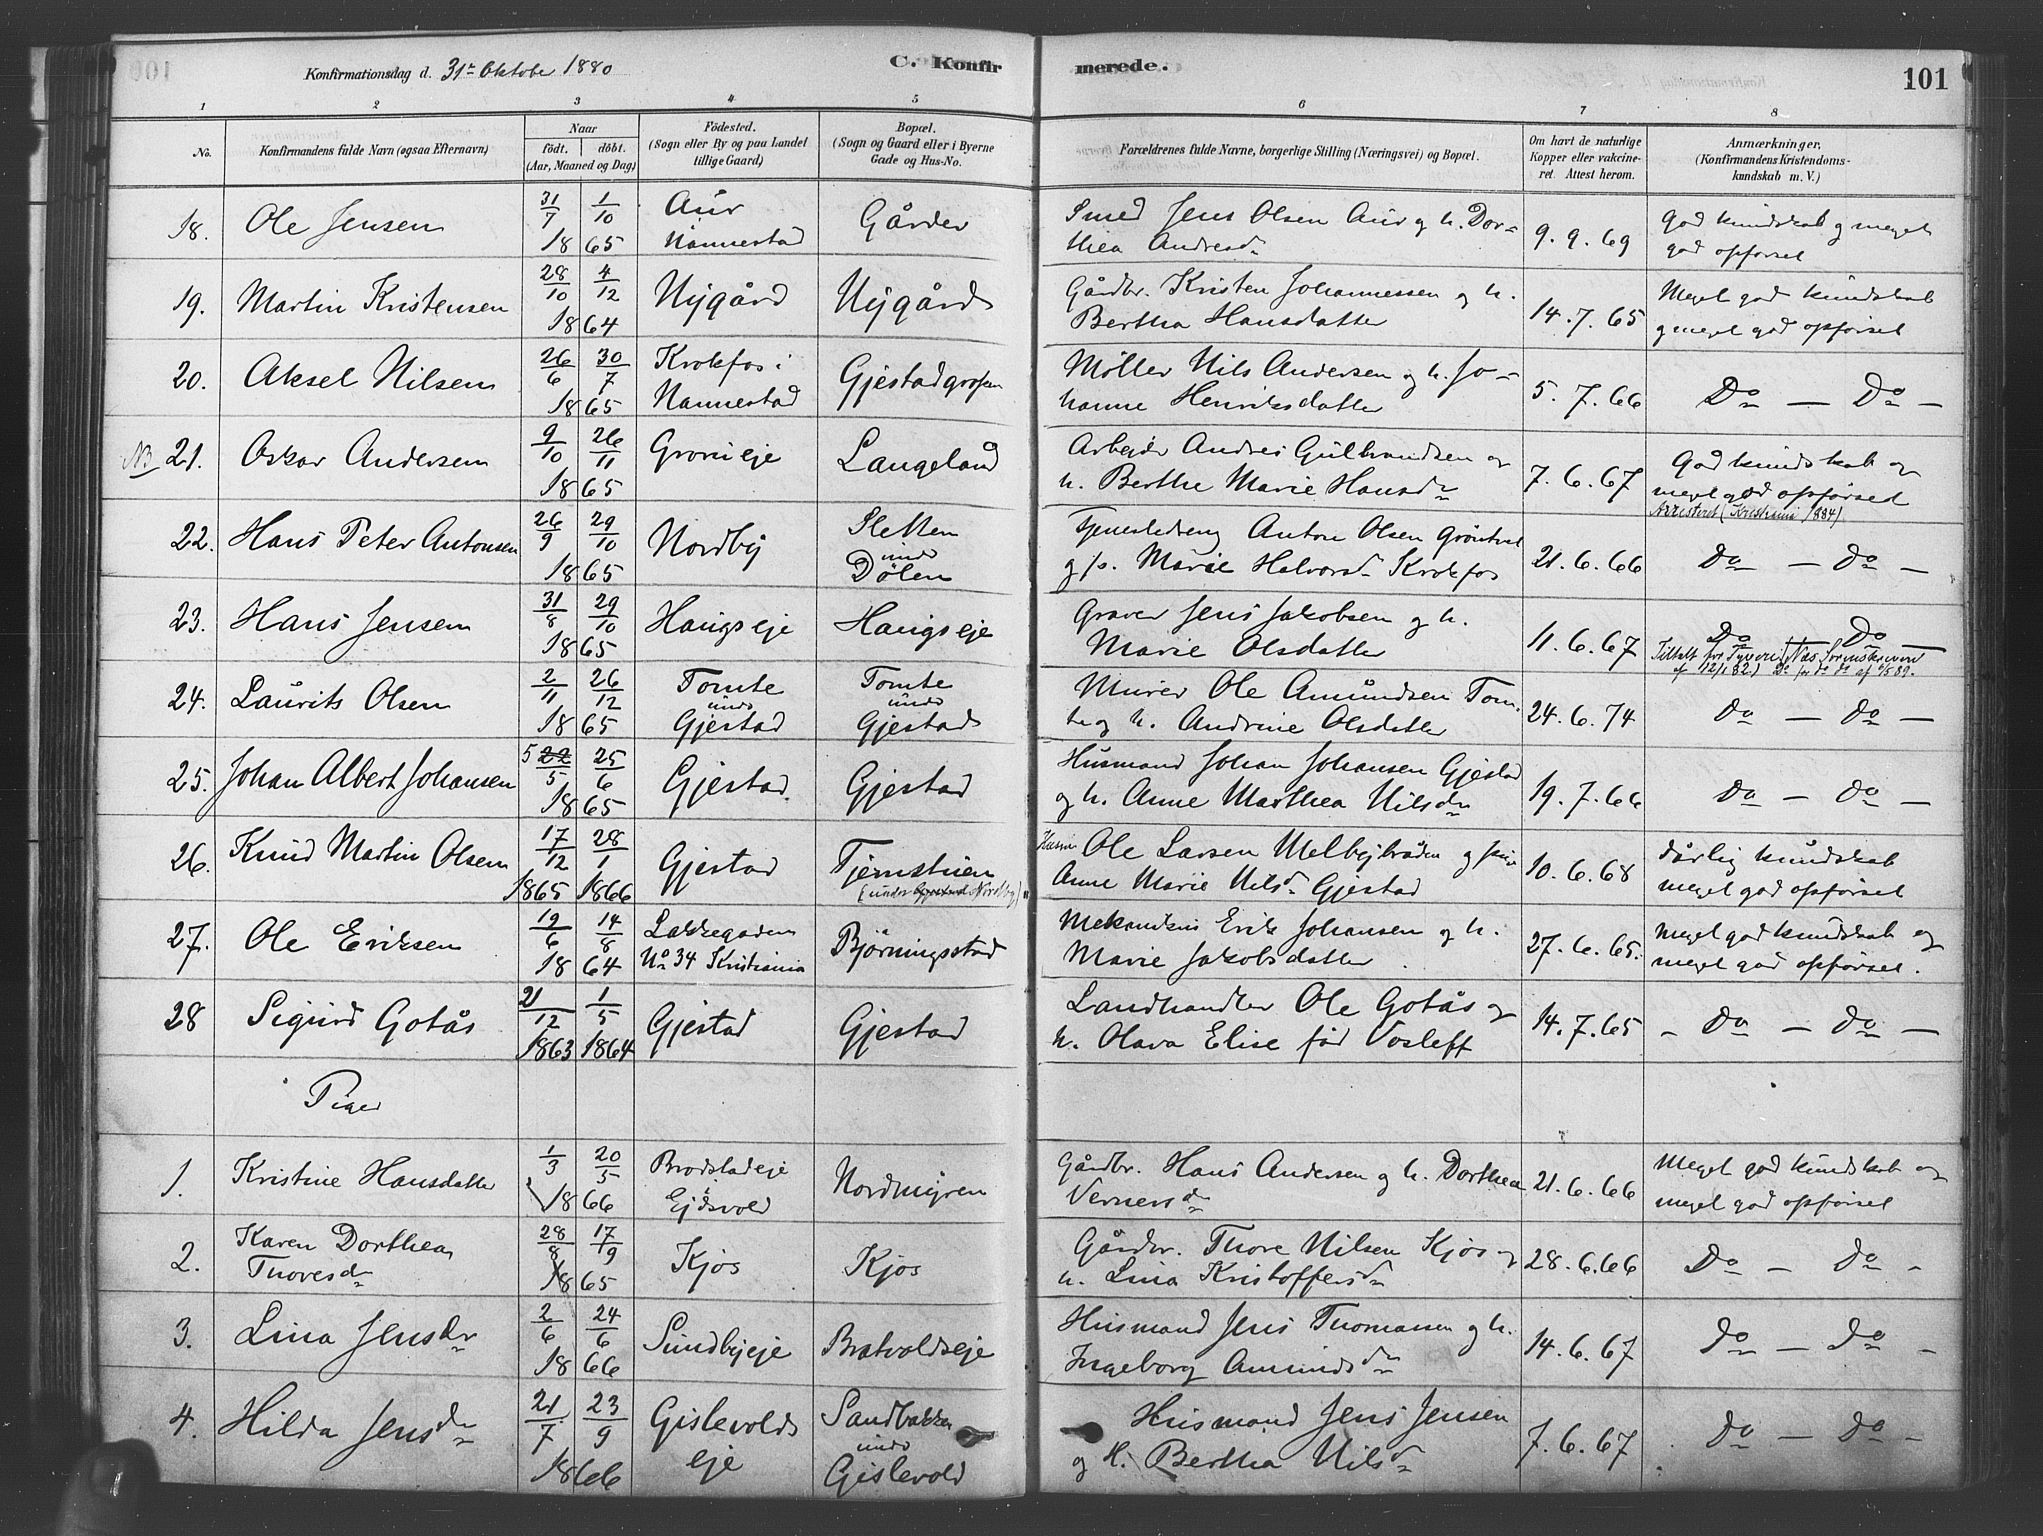 Konfirmationsdag d. 31te Oktober 1880
C. Konfir
merede.
101
1 2 3 4 5 6 7 8
No.
Konfirmandens fulde Navn (ogsaa Efternavn)
Naar
födt. döbt.
(Aar, Maaned og Dag)
Födested.
(Sogn eller By og paa Landet
tillige Gaard)
Bopæl.
(Sogn og Gaard eller i Byerne
Gade og Hus-No.
Forældrenes fulde Navne, borgerlige Stilling (Næringsvei) og Bopæl.
Om havt de naturlige
Kopper eller vakcine-
ret. Attest herom.
Anmærkninger.
(Konfirmandens Kristendoms-
kundskab m. V.)
18. Ole Jensen 31/7 1/10 1865 Aur Nannestad Gårder
Smed Jens Olsen Aur og h. Dor-
thea Andresdr 9.9.69 God kundskab og meget
god opførsel
19. Martin Kristensen 28/10 4/12 1864 Nygård Nygård
Gårdbr. Kristen Johannessen og h.
Bertha Hansdatter 14.7.65 Meget god kundskab
og meget god opførsel
20. Aksel Nilsen 26/6 30/7 1865 Krokfos i Nannestad
Møller Nils Andersen og h. Jo-
hanne Henriksdatter 5.7.66 Do — Do —
NB 21. Oskar Andersen 9/10 26/11 1865 Langeland
Arbejder Andres Gulbrandsen og
h. Berthe Marie Hansdr 7.6.67 God kundskab og
meget god opførsel
Arresteret (Kristiania 1884)
22. Hans Peter Antonsen 26/9 29/10 1865 Nordby Sletten
under
Dølen
Tjenestedreng Anton Olsen
p. Marie Halvorsdr Krokfos 21.6.66 Do — Do —
23. Hans Jensen 31/8 29/10 1865 Haugseje Haugseje
Graver Jens Jakobsen og h.
Marie Olsdatter 11.6.67 Do Do —
Tiltalt for Tyveri
24. Laurits Olsen 2/11 26/12 1865 Tomte under Gjestad Tomte under Gjestad
Murer Ole Amundsen Tom-
te og h. Andrine Olsdatter 24.6.74 Do — Do —
25. Johan Albert Johansen 5 22/5 25/6 1865 Gjestad Gjestad
Husmand Johan Johansen Gjestad
og h. Anne Marthea Nilsdr 19.7.66 Do — Do —
26. Knud Martin Olsen 17/12 1865 28/1 1866 Gjestad Tjernstuen
(under Gjestad Nordby)
Ole Larsen Melbybråden og pige
Anne Marie Nilsdr Gjestad 10.6.68 dårlig kundskab
meget god opførsel
27. Ole Eriksen 19/6 14/8 1864 Lakkegaden
No 34 Kristiania Bjørningsstad
Mekanikus Erik Johansen og h.
Marie Jakobsdatter 27.6.65. Meget god kundskab og
meget god opførsel.
28 Sigurd Gotås 21/12 1863 1/5 1864 Gjestad Gjestad
Landhandler Ole Gotås og
h. Olava Elise fød Vosleff 14.7.65 - Do — Do —
Piger
1. Kristine Hansdatter 1/3 20/5 1866 Brodstadeje
Ejdsvold Nordmyren
Gårdbr. Hans Andersen og h. Dorthea
Vernersdr 21.6.66 Meget god kundskab og
meget god opførsel
2. Karen Dorthea
Thoresdr 28/8 17/9 1865 Kjos Kjos
Gårdbr. Thore Nilsen Kjos og
h. Lina Kristoffersdr 28.6.66 Do — Do -
3. Lina Jensdr 2/6 24/6 1866 Sundbyeje Bratvoldseje
Husmand Jens Thomassen og h.
Ingeborg Amundsdr 14.6.67 Do — Do -
4. Hilda Jensdr 21/7 23/9 1866 Gislevolds
eje Sandbakken
under
Gislevold
Husmand Jens Jensen
og H. Bertha Nilsdr 7.6.67 Do — Do -